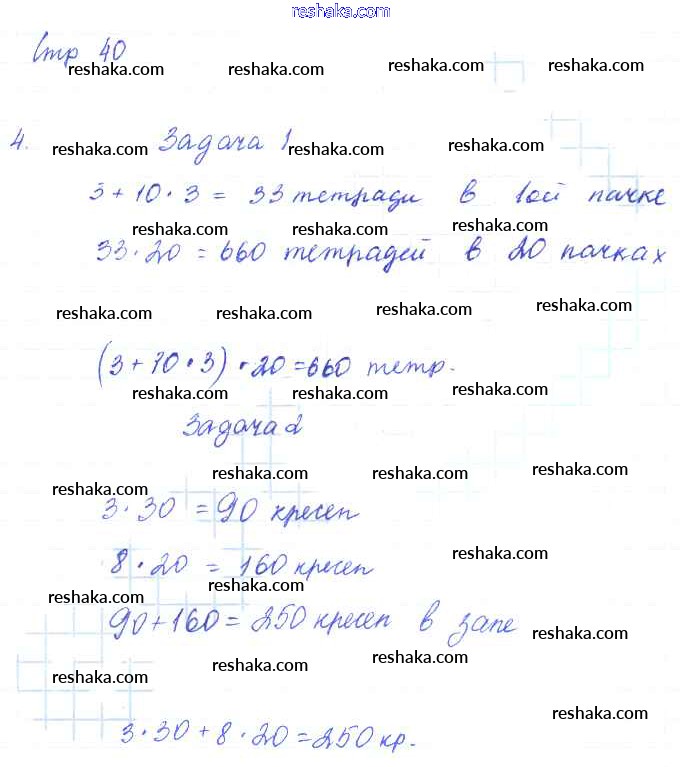 reshaka.com
Стр 40
reshaka.com reshaka.com reshaka.com reshaka.com
4. Задача 1
reshaka.com reshaka.com reshaka.com reshaka.com
3 + 10 · 3 = 33 тетради в 1ой пачке
reshaka.com reshaka.com reshaka.com
33 · 20 = 660 тетрадей в 20 пачках
reshaka.com reshaka.com reshaka.com reshaka.com
(3 + 10 · 3) · 20 = 660 тетр.
reshaka.com reshaka.com reshaka.com
Задача 2
reshaka.com reshaka.com reshaka.com reshaka.com
3 · 30 = 90 кресел
reshaka.com
8 · 20 = 160 кресел
reshaka.com reshaka.com
90 + 160 = 250 кресел в зале
reshaka.com reshaka.com reshaka.com reshaka.com
3 · 30 + 8 · 20 = 250 кр.
reshaka.com